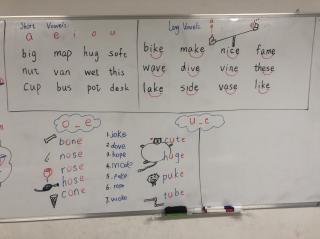 Short Vowels:
a e i o u
big map hug soft
nut van wet this
cup bus pot desk
Long Vowels:
bike make nice fame
wave dive vine these
lake side vase like
o_e
bone
nose
rose
hose
cone
1. joke
2. dove
3. hope
4.
5. poke
6.
7. woke
u_e
cute
huge
puke
tube